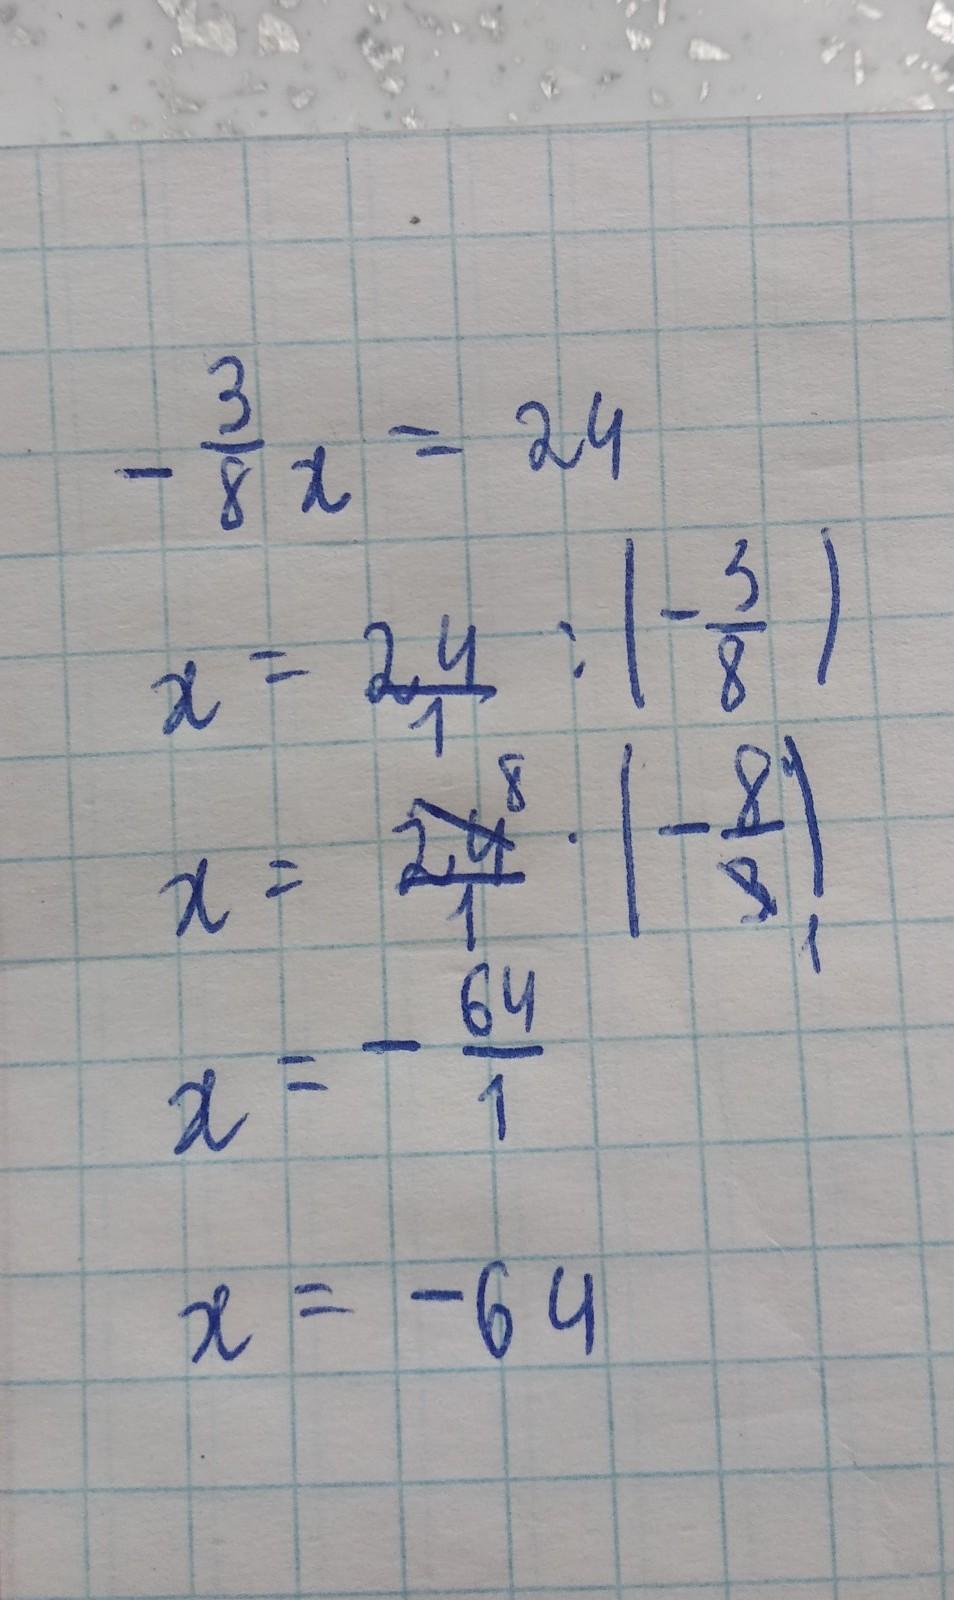 - 3/8 x = 24
x = 24/1 : (- 3/8)
x = 24/1 8 · (- 8/3) 1
x = - 64/1
x = -64